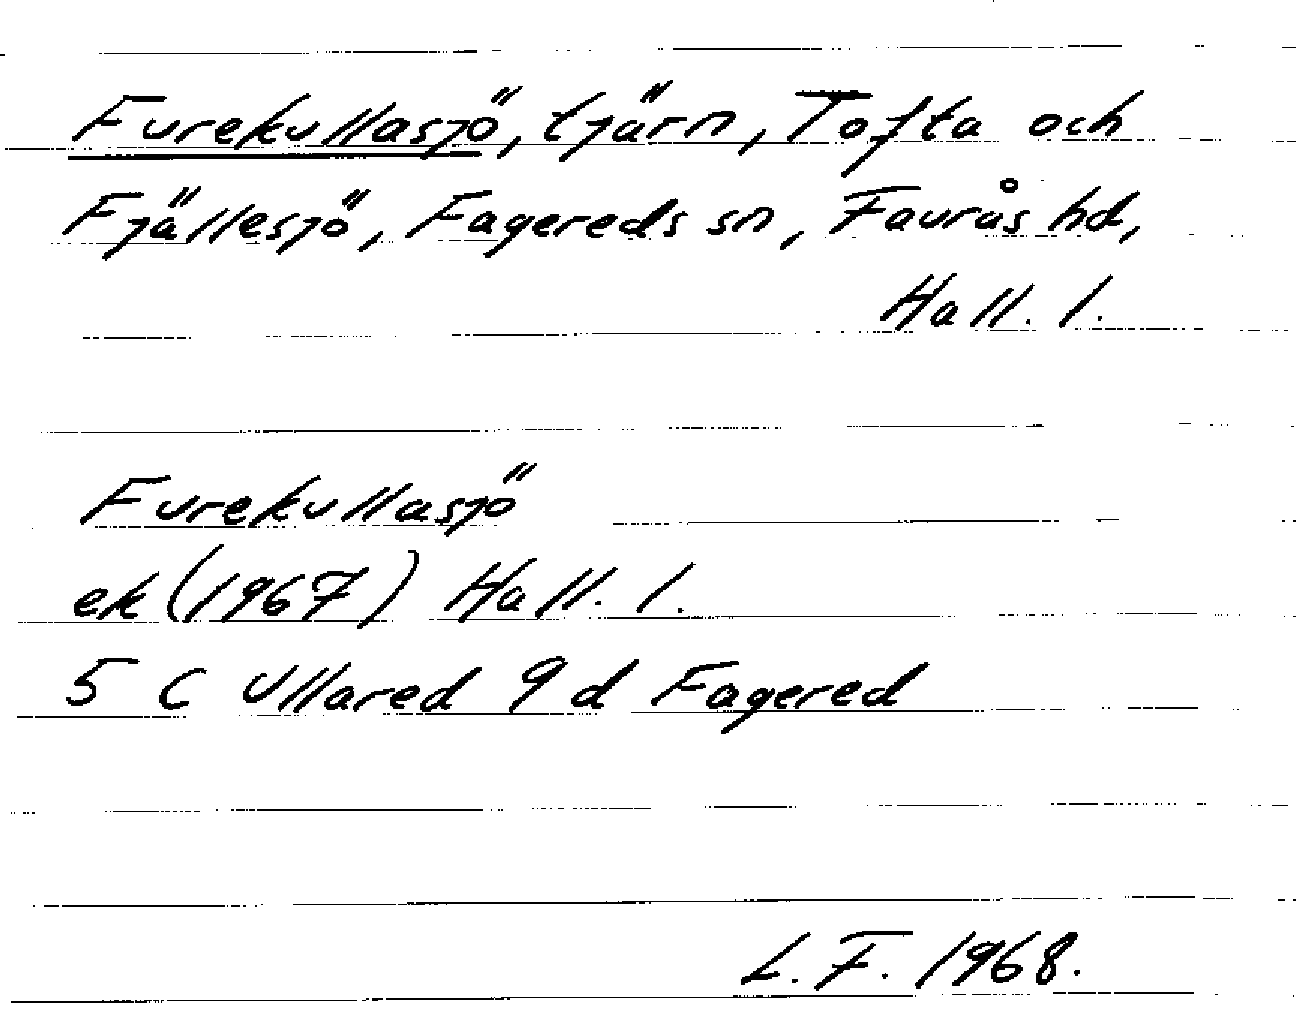 Furekullasjö, tjärn, Tofta och
Fjällesjö, Fagereds sn, Faurås hd,
Hall. l.
Furekullasjö
ek (1967) Hall. l.
5 C Ullared 9 d Fagered
L. F. 1968.